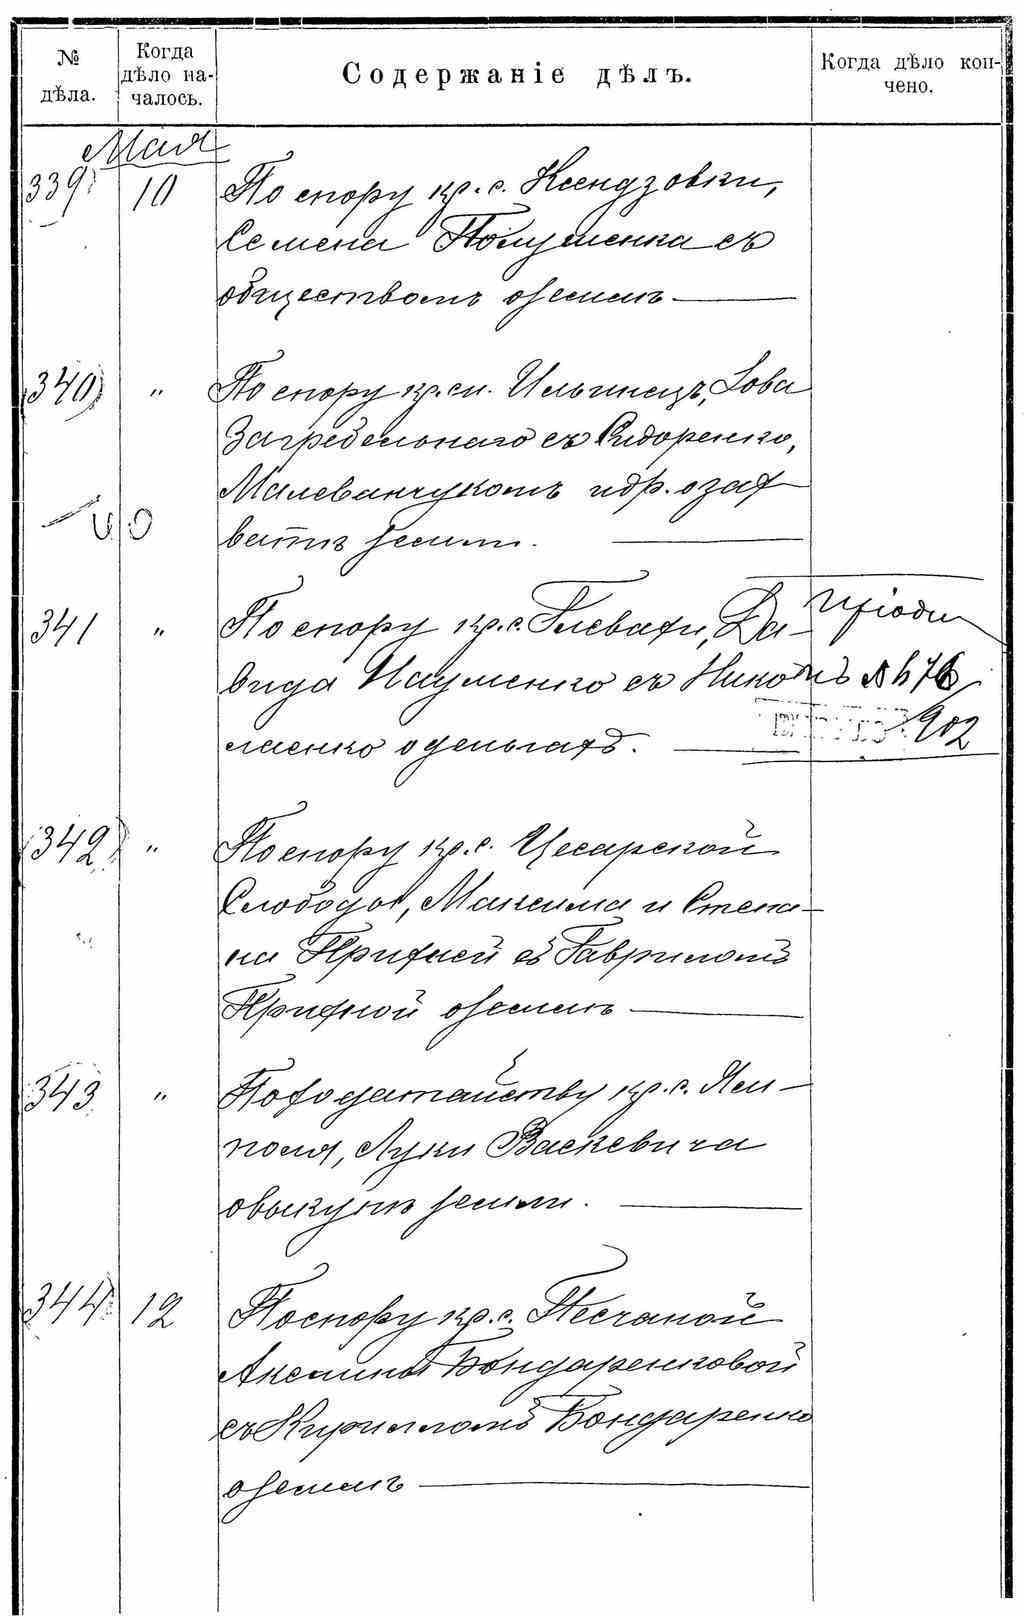 № дѣла.
Когда дѣло на-чалось.
Содержаніе дѣлъ.
Когда дѣло кон-чено.
Мая
339 10 По спору кр. с. Ксендзовки,
Семена Полуменка съ
обществомъ о землѣ
340 " По спору кр. с. Ильинецъ, Іова
Загребельнаго съ Сидоренко,
Малеванчукомъ и др. о зах
ватѣ земли.
341 " По спору кр. с. Глевахи, Да-
вида Науменко съ Нико
лаенко о деньгахъ.
№ 476
902
342 " По спору кр. с. Цесарской
Слободы, Максима и Степа-
на Прихней съ Гавриломъ
Прихной о землѣ
343 " По ходатайству кр. с. Ям-
поля, Луки Васкевича
о выкупѣ земли.
344 12 По спору кр. с. Песчаной
Аксиньи Бондаренковой
съ Кирилломъ Бондаренко
о землѣ